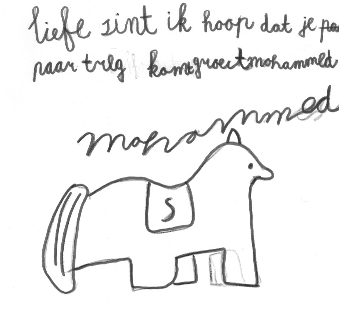 liefe sint ik hoop dat je
paar trug komt groet mohammed
mohammed
S